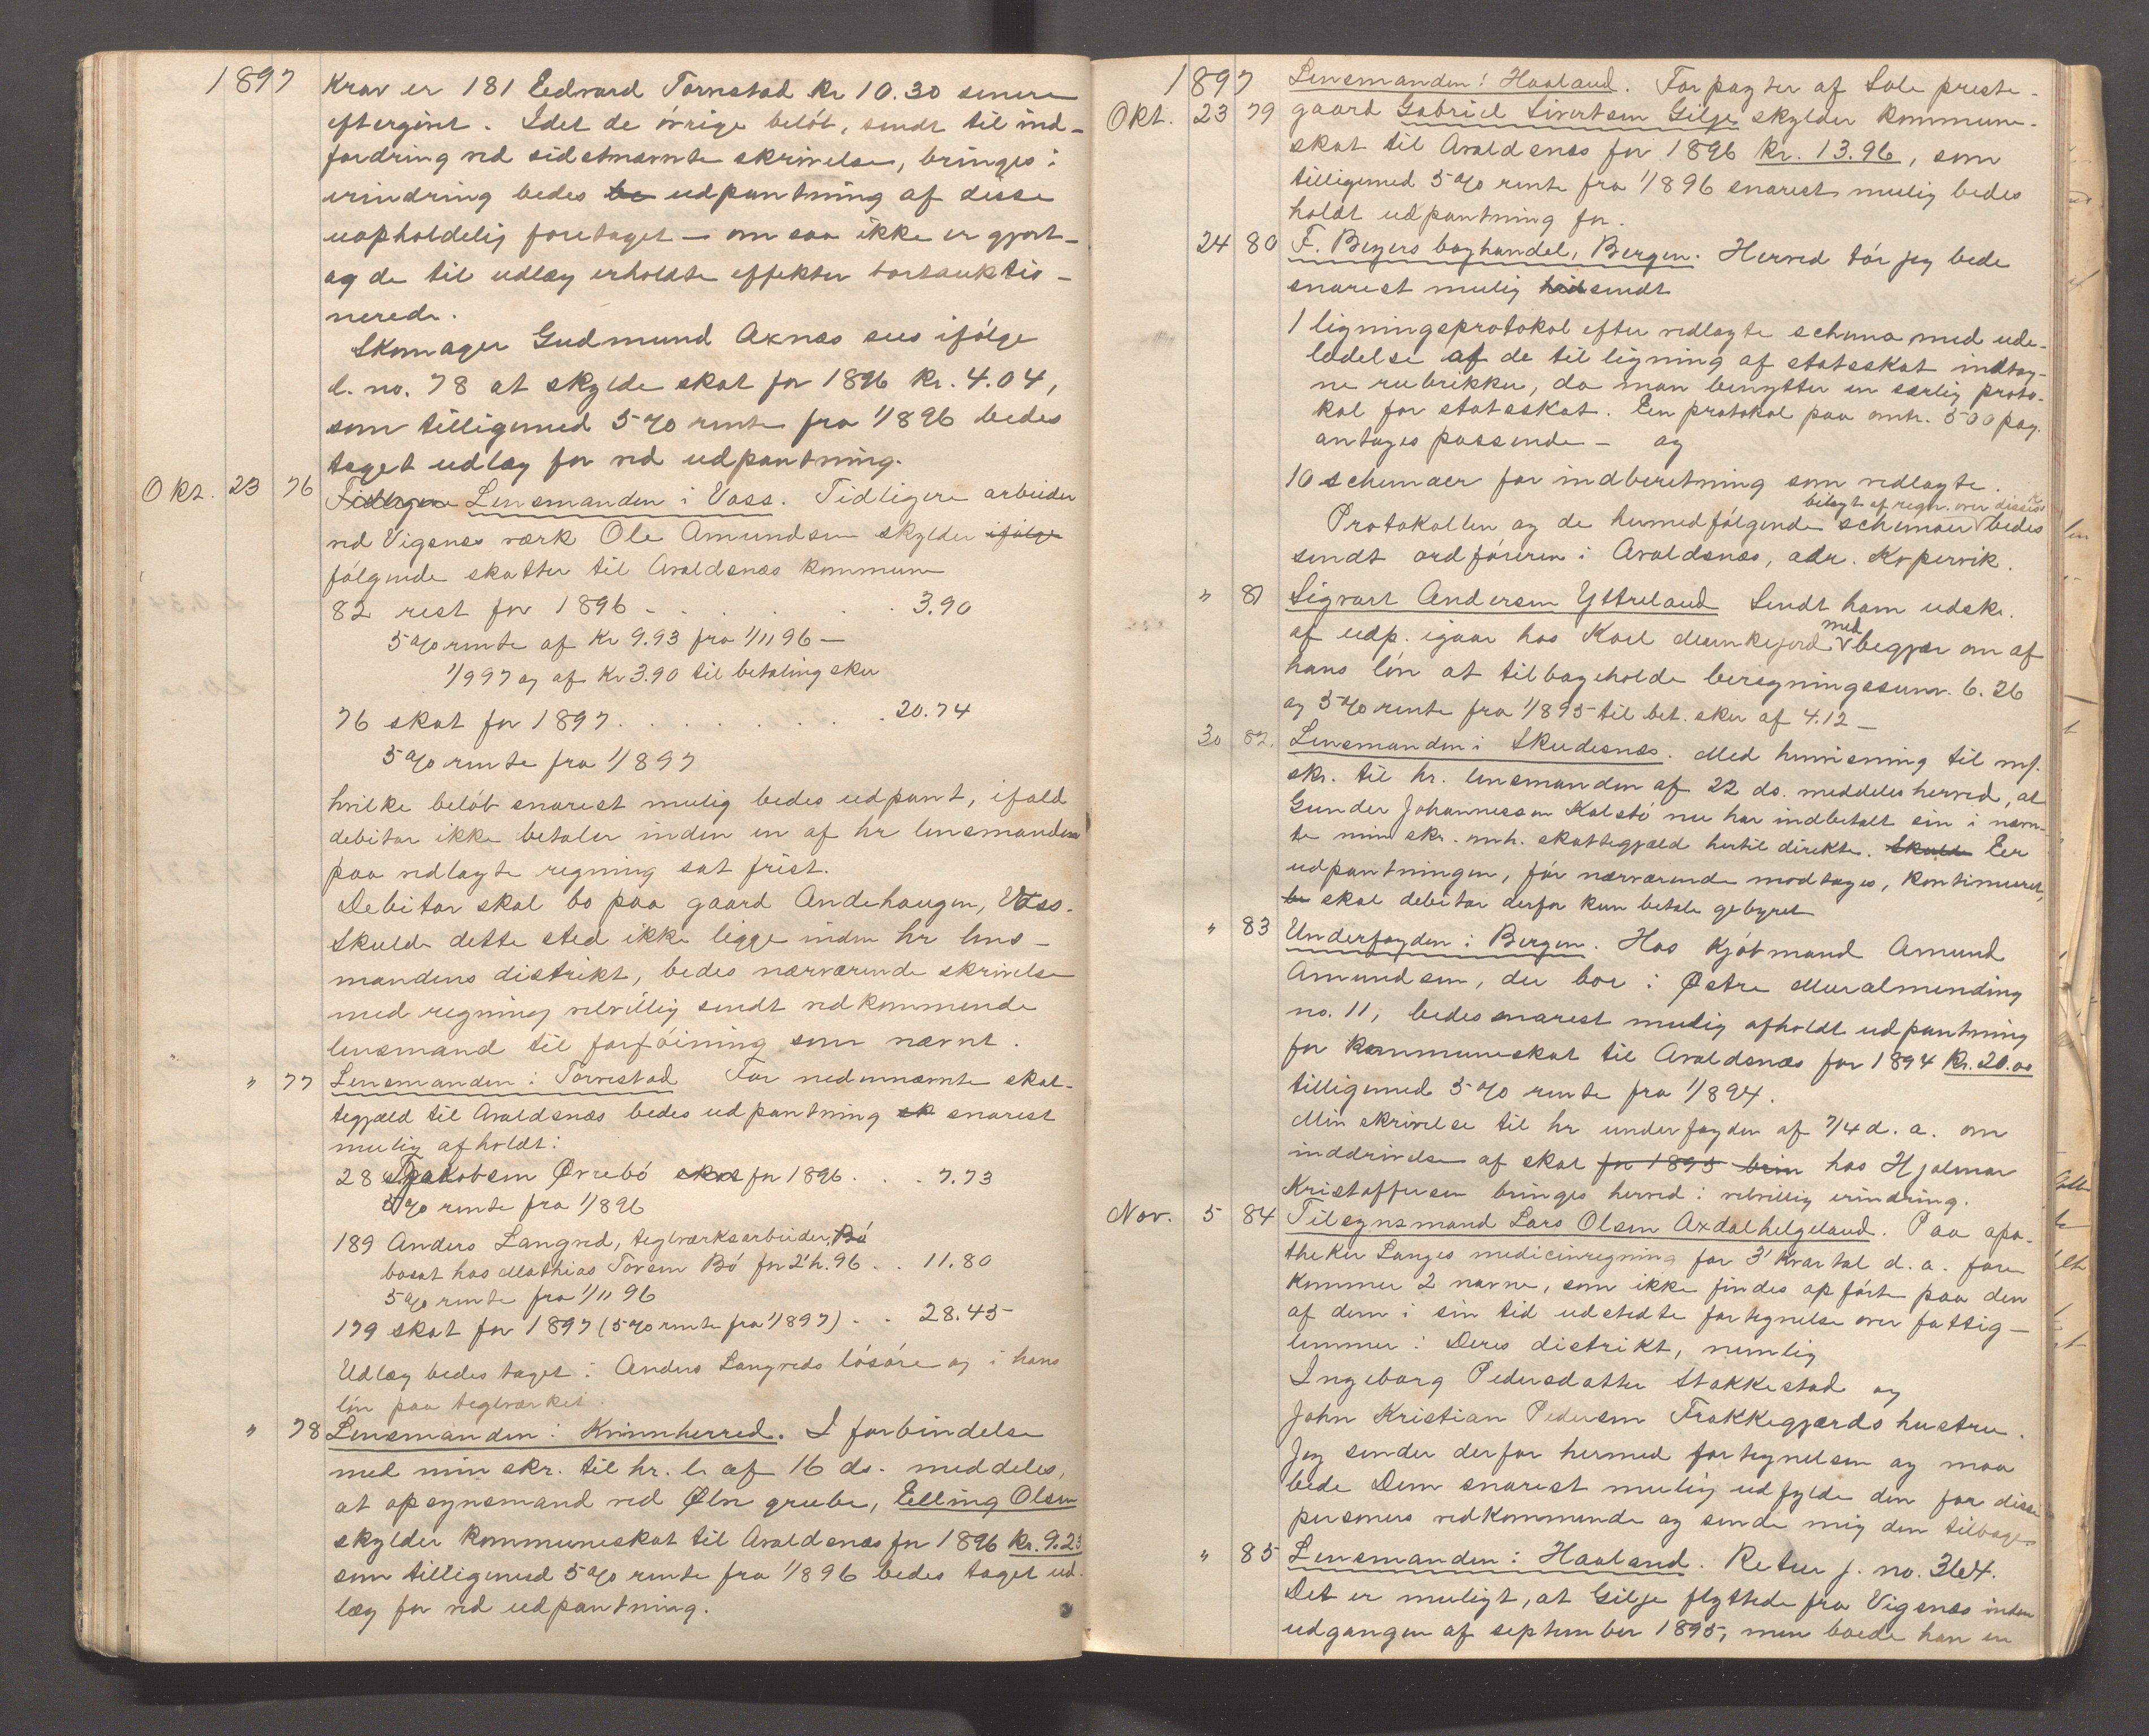 1897 Krav er 181 Eedvard Torvestad kr 10.30 senere
eftergivet. Idet de øvrige beløb, sendt til ind-
fordring ved sidstnævnte skrivelse, bringes i
erindring bedes be udpantning af disse
uopholdelig foretaget – om saa ikke er gjort –
og de til udlæg erholdte effekter bortauktio-
nerede.
Skomager Gudmund Axnæs sees ifølge
l. no. 78 at skylde skat for 1896 kr. 4.04,
som tilligemed 5% rente fra 1/8 96 bedes
taget udlæg for ved udpantning.
Okt. 23 76 Tidligere Lensmanden i Voss. Tidligere arbeider
ved Vigsnes værk Ole Amundsen skylder ifølge
følgende skatter til Avaldsnæs kommune
82 rest for 1896 . . . . . 3.90
5% rente af kr 9.93 fra 1/11 96 –
1/9 97 og af kr 3.90 til betaling sker
76 skat for 1897 . . . . . 20.74
5% rente fra 1/8 97
hvilke beløb snarest mulig bedes udpant, ifald
debitor ikke betaler inden en af hr lensmanden
paa vedlagte regning sat frist.
Debitor skal bo paa gaard Andehaugen, Voss.
Skulde dette sted ikke ligge inden hr lens-
mandens distrikt, bedes nærværende skrivelse
med regning velvillig sendt vedkommende
lensmand til forføining som nævnt.
" 77 Lensmanden i Torvestad For nedennævnte skat-
tegjæld til Avaldsnæs bedes udpantning sk snarest
mulig afholdt:
28 Jakobsen Øvrebø skat for 1896 . . . 7.73
5% rente fra 1/8 96
189 Anders Langved, teglværksarbeider, Bø
bosat hos Mathias Torsen Bø for 2' h. 96 . . 11.80
5% rente fra 1/11 96
179 skat for 1897 (5% rente fra 1/8 97) . . 28.45
Udlæg bedes taget i Anders Langveds løsøre og i hans
løn paa teglværket.
" 78 Lensmanden i Kvinnherred. I forbindelse
med min skr. til hr. l. af 16 ds. meddeles,
at opsynsmand ved Ølve grube, Elling Olsen
skylder kommuneskat til Avaldsnæs for 1896 kr. 9.23
som tilligemed 5% rente fra 1/8 96 bedes taget ud-
læg for ved udpantning.
1897 Lensmanden i Haaland. Forpagter af Sole preste-
Okt. 23 79 gaard Gabriel Sivertsen Gilje skylder kommune-
skat til Avaldsnæs for 1896 kr. 13.96, som
tilligemed 5% rente fra 1/8 96 snarest mulig bedes
holdt udpantning for.
24 80 F. Beyers boghandel, Bergen. Herved tør jeg bede
snarest mulig sendt
1 ligningsprotokol efter vedlagte schema med ude-
ladelse af de til ligning af statsskat indtag-
ne rubrikker, da man benytter en særlig proto-
kol for statsskat. Een protokol paa omtr. 500 pag.
antages passende – og
10 schemaer for indberetning som vedlagte.
bilagt af regn. over disses
Protokollen og de hermedfølgende schemaer bedes
sendt ordføreren i Avaldsnæs, adr. Kopervik.
" 81 Sigvart Andersen Yttreland Sendt ham udskr.
af udp. igaar hos Karl Munkejord med begjær om af
hans løn at tilbageholde beregningssum. 6.26
og 5% rente fra 1/8 95 til bet. sker af 4.12 –
30 82. Lensmanden i Skudesnæs. Med henvisning til m/.
skr. til hr. lensmanden af 22 ds. meddeles herved, at
Gunder Johannessen Kalstø nu har indbetalt sin i nævn-
te min skr. omh. skattegjæld hertil direkte. Skuld Eer
udpantningen, før nærværende modtages, kontinueret,
be skal debitor derfor kun betale gebyret
" 83 Underfogden i Bergen. Hos Kjøbmand Amund
Amundsen, der bor i Østre Muralmending
no. 11, bedes snarest mulig afholdt udpantning
for kommuneskat til Avaldsnæs for 1894 kr. 20.00
tilligemed 5% rente fra 1/8 94.
Min skrivelse til hr underfogden af 7/4 d. a. om
inddrivelse af skat for 1895 hos Hjalmar
Kristoffersen bringes herved i velvillig erindring.
Nov. 5 84 Tilsynsmand Lars Olsen Axdalhelgeland. Paa apo-
theker Langes medicinregning for 3' kvartal d. a. fore-
kommer 2 navne, som ikke findes opført paa den
af dem i sin tid udstedte fortegnelse over fattig-
lemmer i Deres distrikt, nemlig
Ingeborg Pedersdatter Stakkestad og
John Kristian Pedersen Trækkegjærds hustru.
Jeg sender derfor hermed fortegnelsen og maa
bede Dem snarest mulig udfylde den for disse
personers vedkommende og sende mig den tilbage.
" 85 Lensmanden i Haaland. Retur j. no. 364.
Det er muligt, at Gilje flyttede fra Vigsnæs inden
udgangen af september 1895, men boede han en